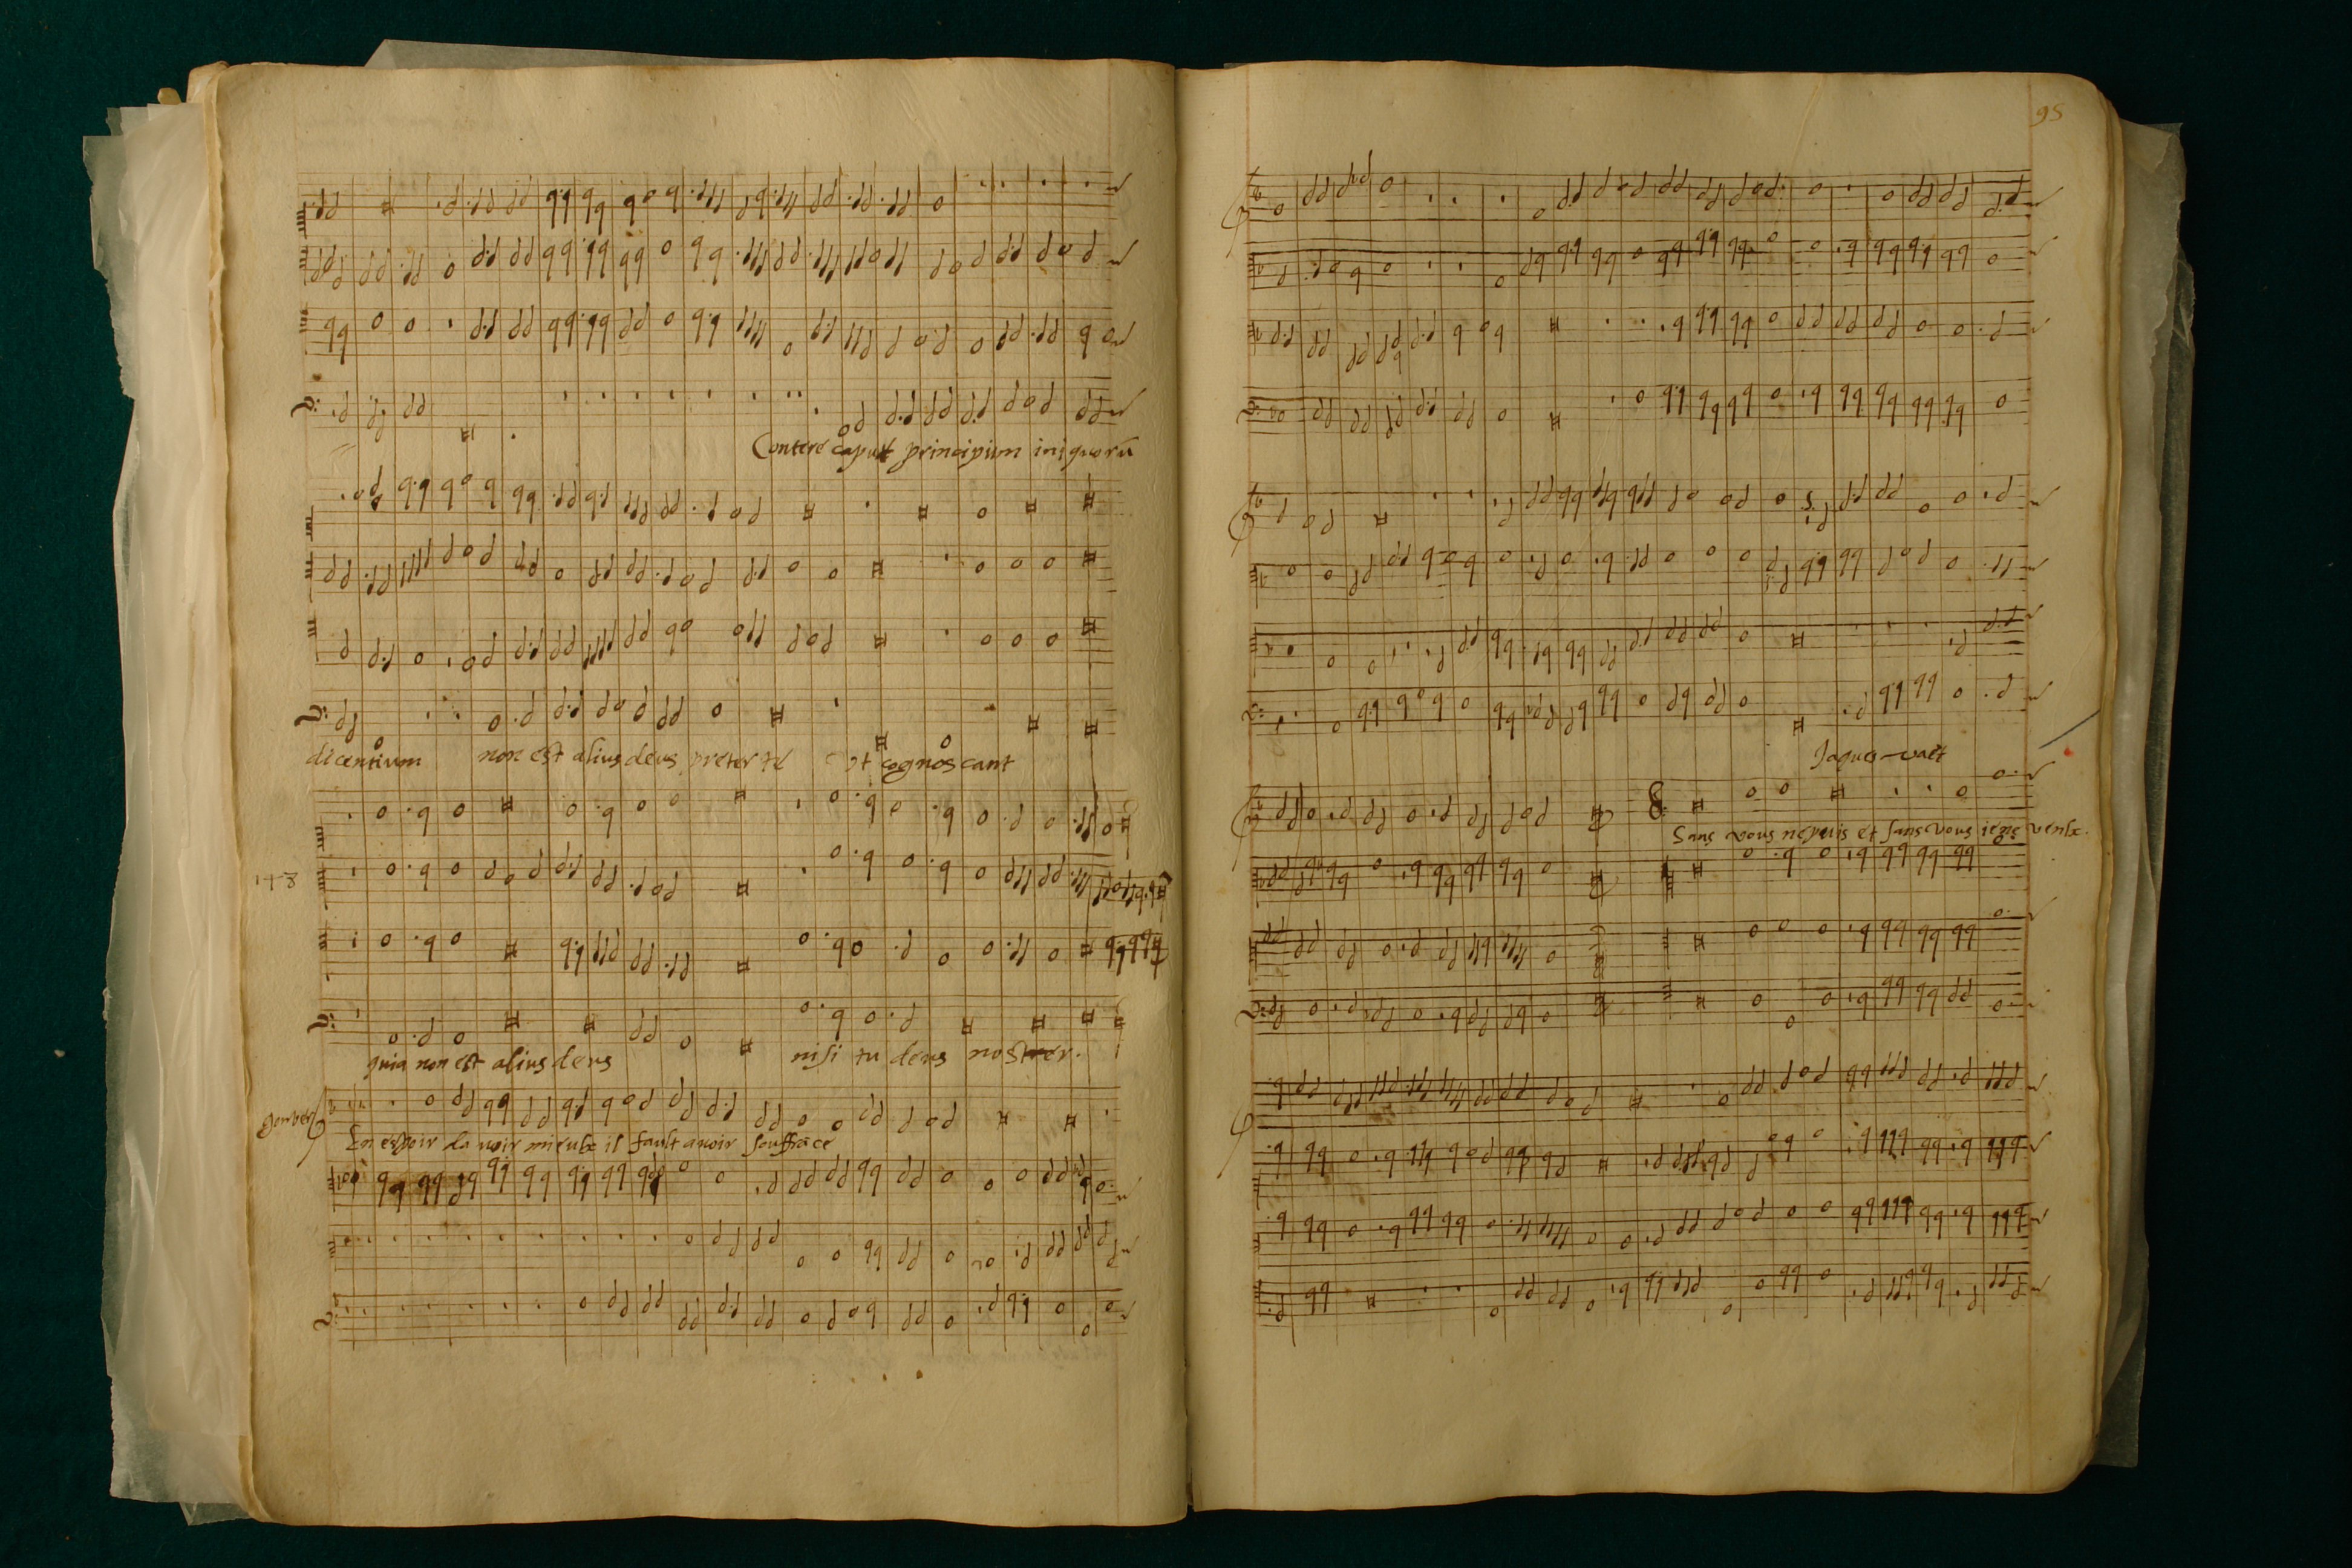 Contere caput principum iniquorū
dicentium non est alius deus preter te Ut cognoscant
quia non est alius deus nisi tu deus noster.
En espoir da uoir mieulx il fault auoir souffrāce
95
Jaques vaet
Sans vous ne puis et sans vous ie ne veulx.